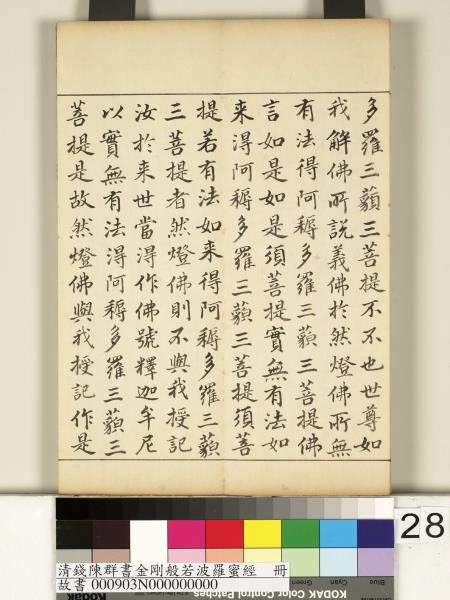 多羅三藐三菩提不不也世尊如
我解佛所說義佛於然燈佛所無
有法得阿耨多羅三藐三菩提佛
言如是如是須菩提實無有法如
来得阿耨多羅三藐三菩提須菩
提若有法如来得阿耨多羅三藐
三菩提者然燈佛則不與我授記
汝於来世當得作佛號釋迦牟尼
以實無有法得阿耨多羅三藐三
菩提是故然燈佛與我授記作是
28
清錢陳群書金剛般若波羅蜜經 冊
故書 000903N000000000
Blue Cyan Green
KODAK Color Control Patches